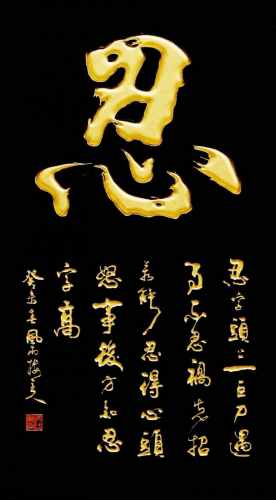 忍
忍字頭上一把刀遇
事不忍禍先招
若能忍得心頭
怒事後方知忍
字高
癸未春風雨主人